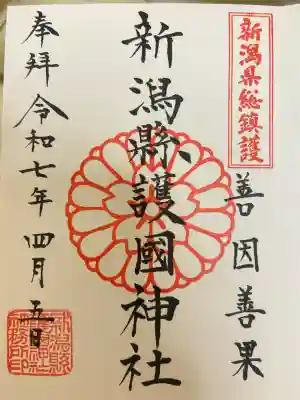 新潟県総鎮護
善因善果
新潟縣護國神社
奉拝令和七年四月五日